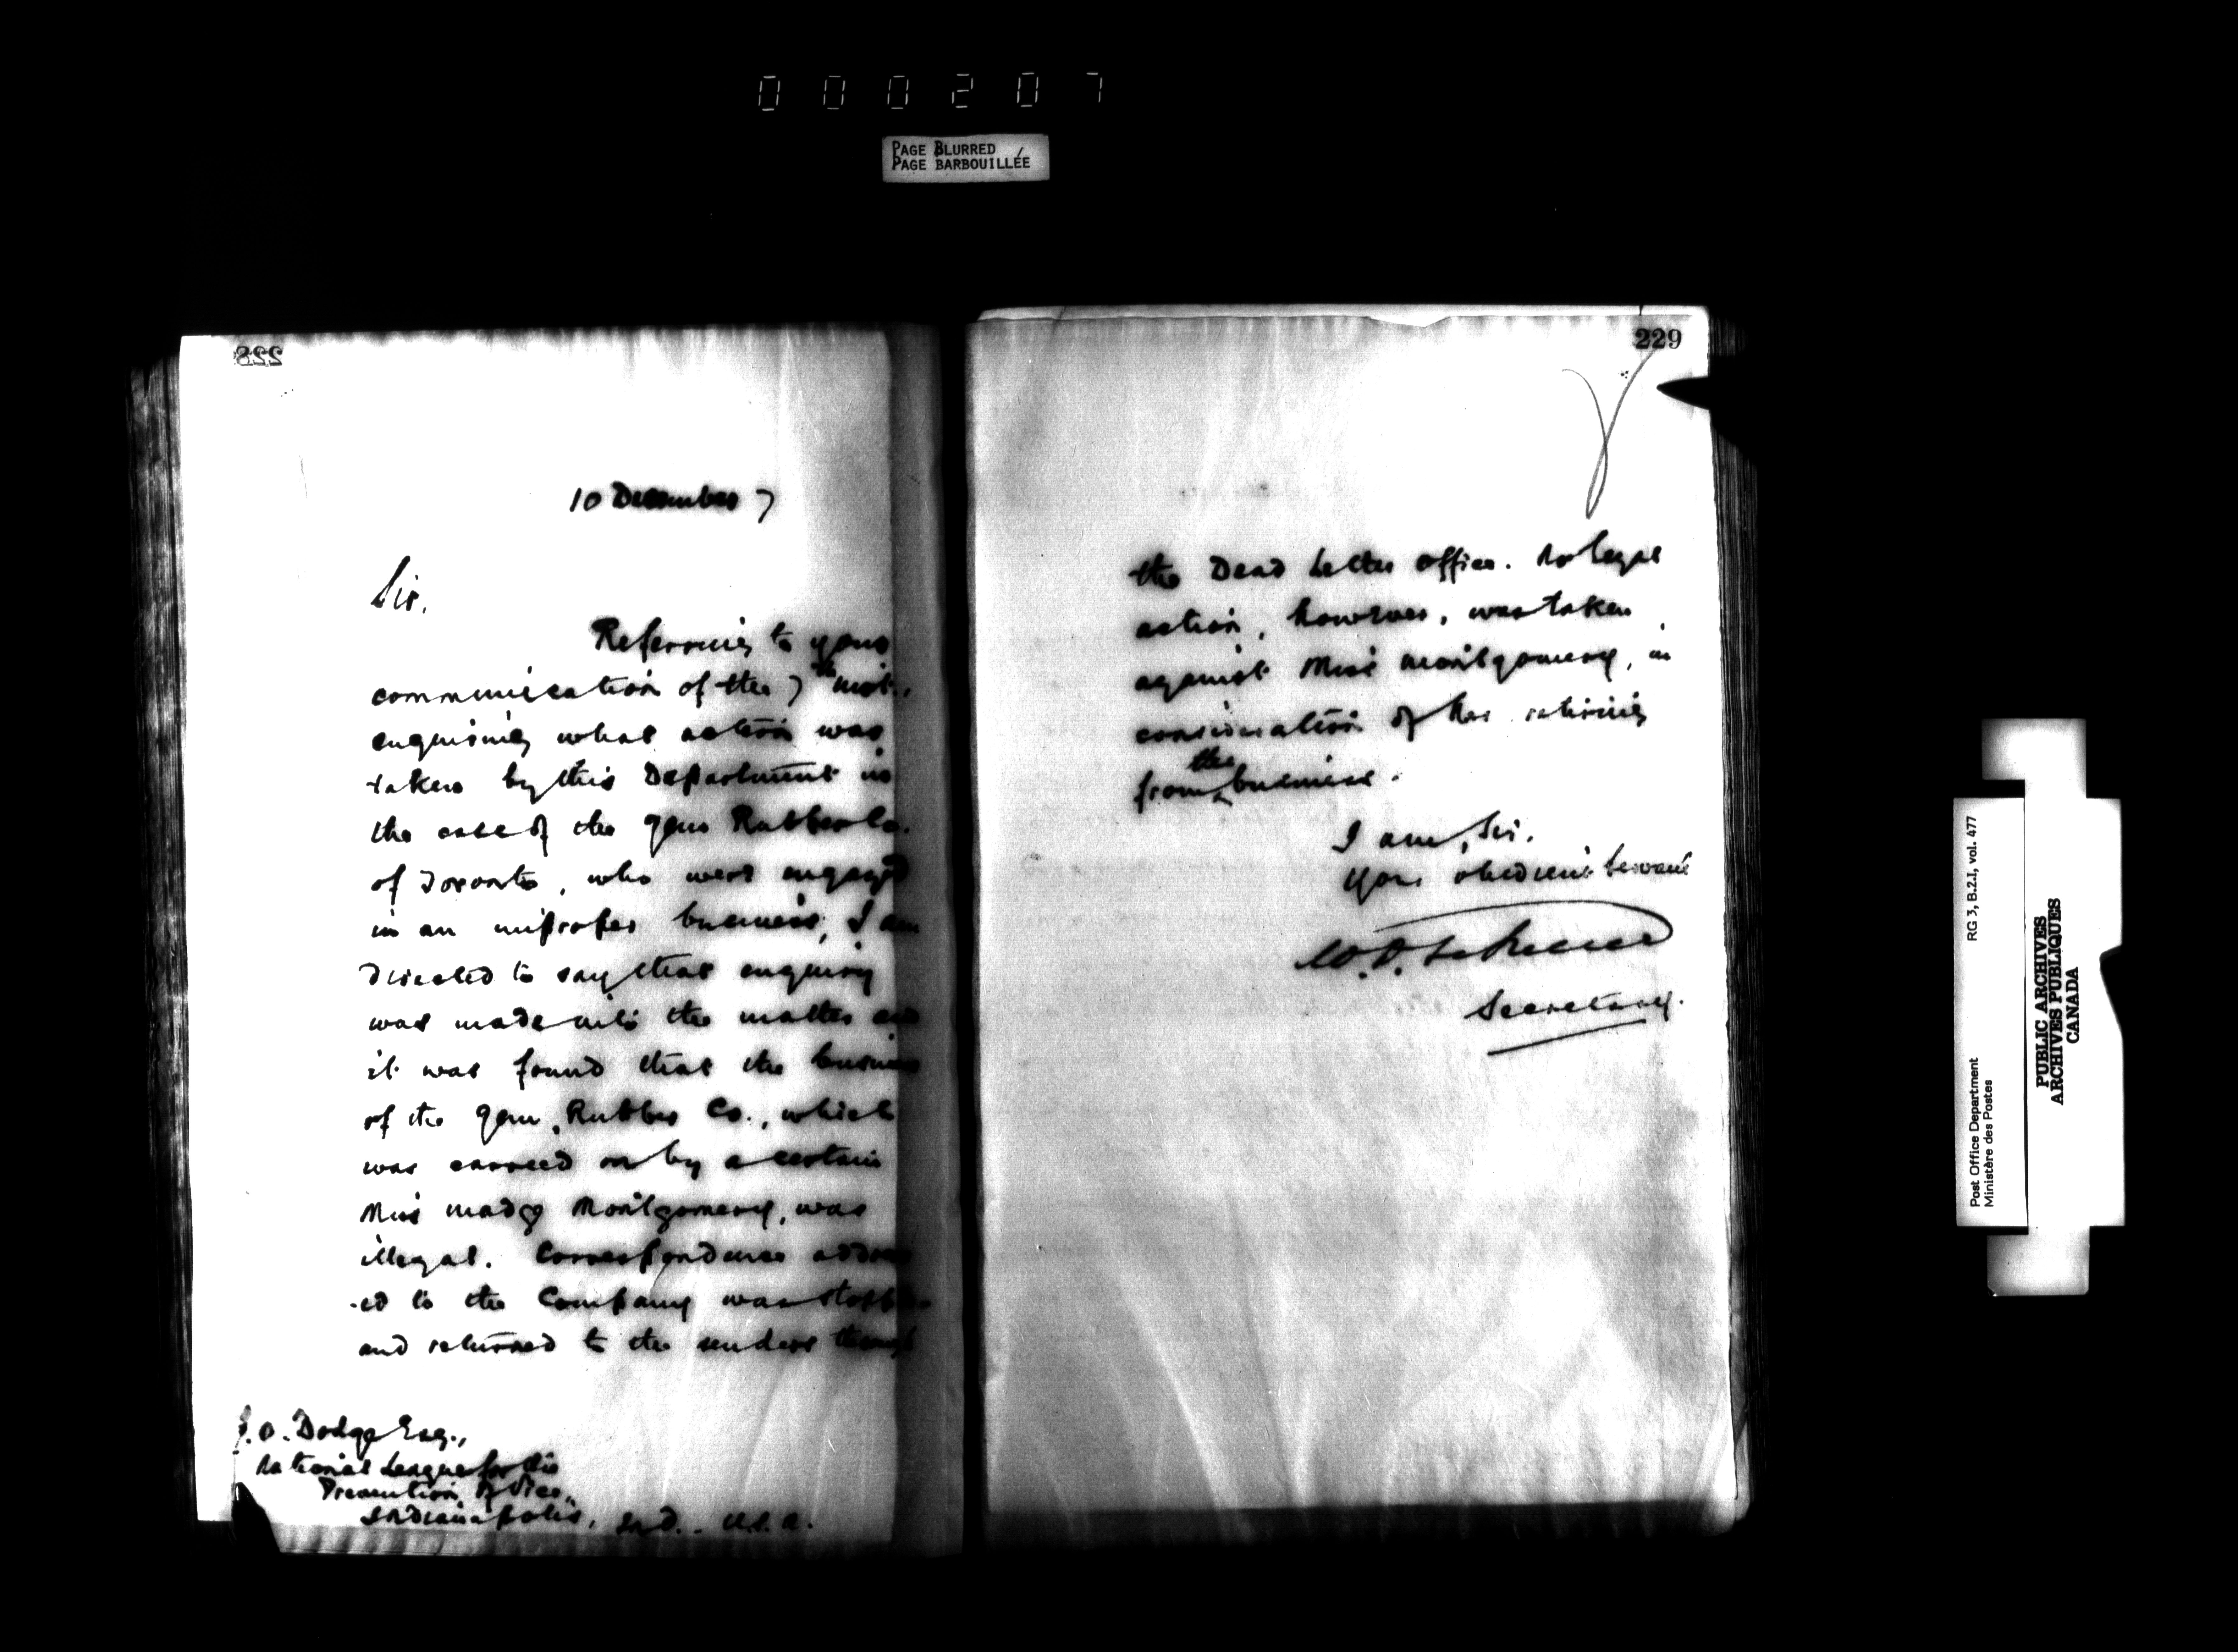 000207
PAGE BLURRED
PAGE BARBOUILLÉE
228
10 December 7
Sir,
Referring to your
communication of the 7th inst.,
enquiring what action was
taken by this Department in
the case of the Gem Rubber Co.
of Toronto, who were engaged
in an improper business, I am
directed to say that enquiry
was made into the matter and
it was found that the business
of the Gem Rubber Co., which
was carried on by a certain
Miss Madge Montgomery, was
illegal. Correspondence address
-ed to the Company was stopped
and returned to the senders through
O. Dodge Esq.,
National League for the
Prevention of Vice,
Indianapolis, Ind. U.S.A.
229
the Dead Letter Office. No legal
action, however, was taken
against Miss Montgomery, in
consideration of her retiring
the
from business.
I am, Sir,
Your obedient Servant
Secretary.
RG 3, B.2.I, vol. 477
Post Office Department
Ministère des Postes
PUBLIC ARCHIVES
ARCHIVES PUBLIQUES
CANADA